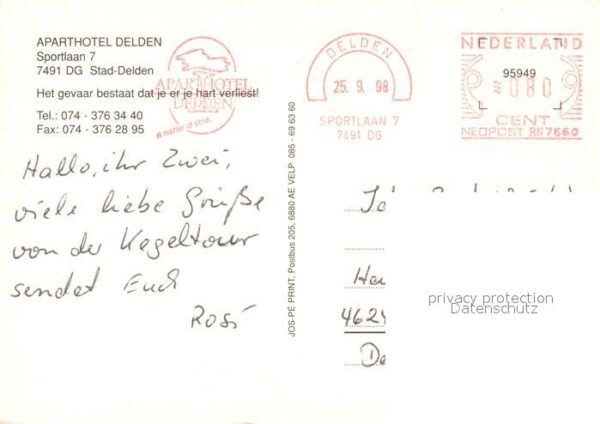 APARTHOTEL DELDEN
Sportlaan 7
7491 DG Stad-Delden
Het gevaar bestaat dat je er je hart verliest!
Tel.: 074 - 376 34 40
Fax: 074 - 376 28 95
APARTHOTEL
DELDEN
A matter of style.
DELDEN
25. 9. 98
SPORTLAAN 7
7491 DG
NEDERLAND
95949
080
CENT
NEOPOST RN7660
Hallo, ihr Zwei,
viele liebe Grüße
von der Kegeltour
sendet Euch
Rosi
JOS-PÉ PRINT, Postbus 205, 6880 AE VELP 085 - 69 63 60
privacy protection
Datenschutz